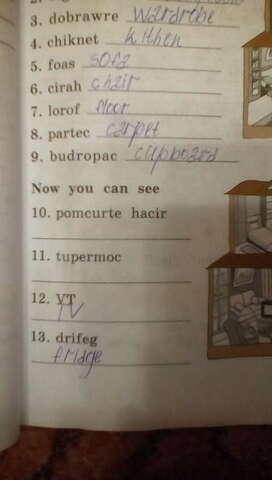 3. dobrawre wardrobe
4. chiknet kithen
5. foas sofa
6. cirah chair
7. lorof floor
8. partec carpet
9. budropac cupboard
Now you can see
10. pomcurte hacir
11. tupermoc
12. VT TV
13. drifeg
fridge